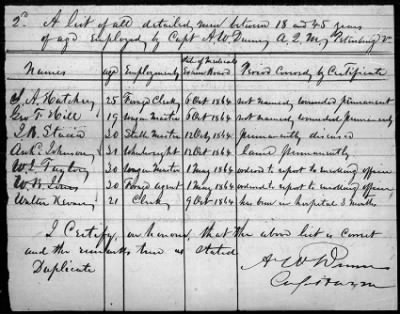 2d A list of all detailed men between 18 and 45 years
of age Employed by Capt A. W. Dunn A. Q. M. Petersburg Va
Names age Employment Date of Medical Exam Board Period Covered by Certificate
Hatcher 25 Forage Clerk 6 Oct 1864 not named wounded permanent
Geo T. Hill 19 Wagon Master 5 Oct 1864 not named wounded permanently
30 Stable Master 12 Oct 1864 permanently diseased
Johnson 31 12 Oct 1864 lame permanently
W. Taylor 30 Wagon Master 1 May 1864 ordered to report to enrolling officer
W. 30 Forage agent 1 May 1864 ordered to report to enrolling officer
Walter 21 Clerk 9 Oct 1864 has been in hospital 3 months
I Certify, on honour, that the above list is correct
and the remarks true as stated
Duplicate A W Dunn